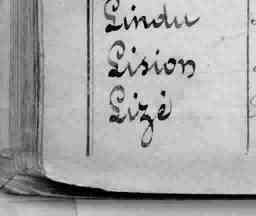 Lindu
Lision
Lizé